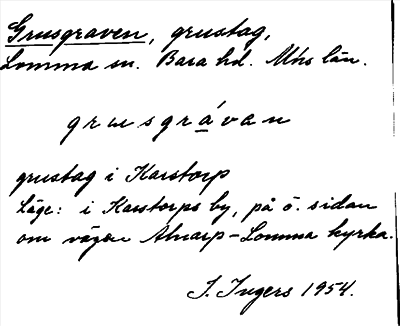 Grusgraven, grustag,
Lomma sn. Bara hd. Mhs län.
grusgrávan
grustag i Karstorp
Läge: i Karstorps by, på ö. sidan
om vägen Alnarp-Lomma kyrka.
I. Ingers 1954.